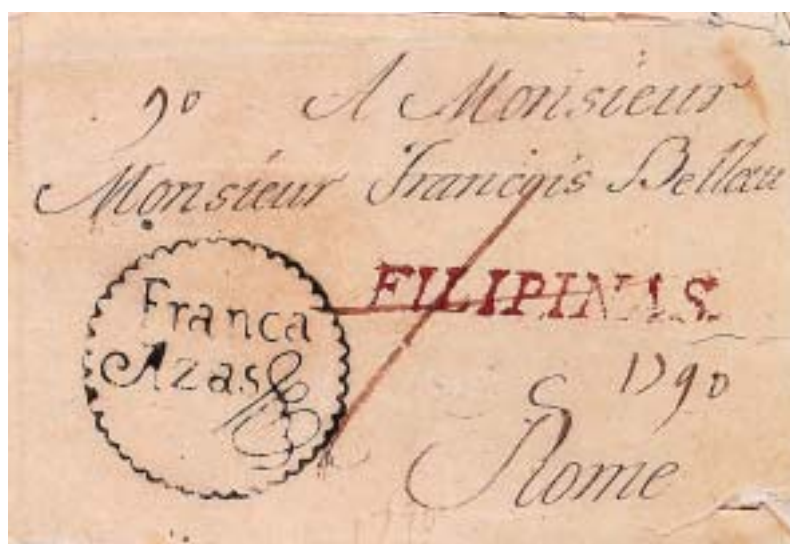 90 A Monsieur
Monsieur François Belleau
Franca
Azas
FILIPINAS
1790
Rome